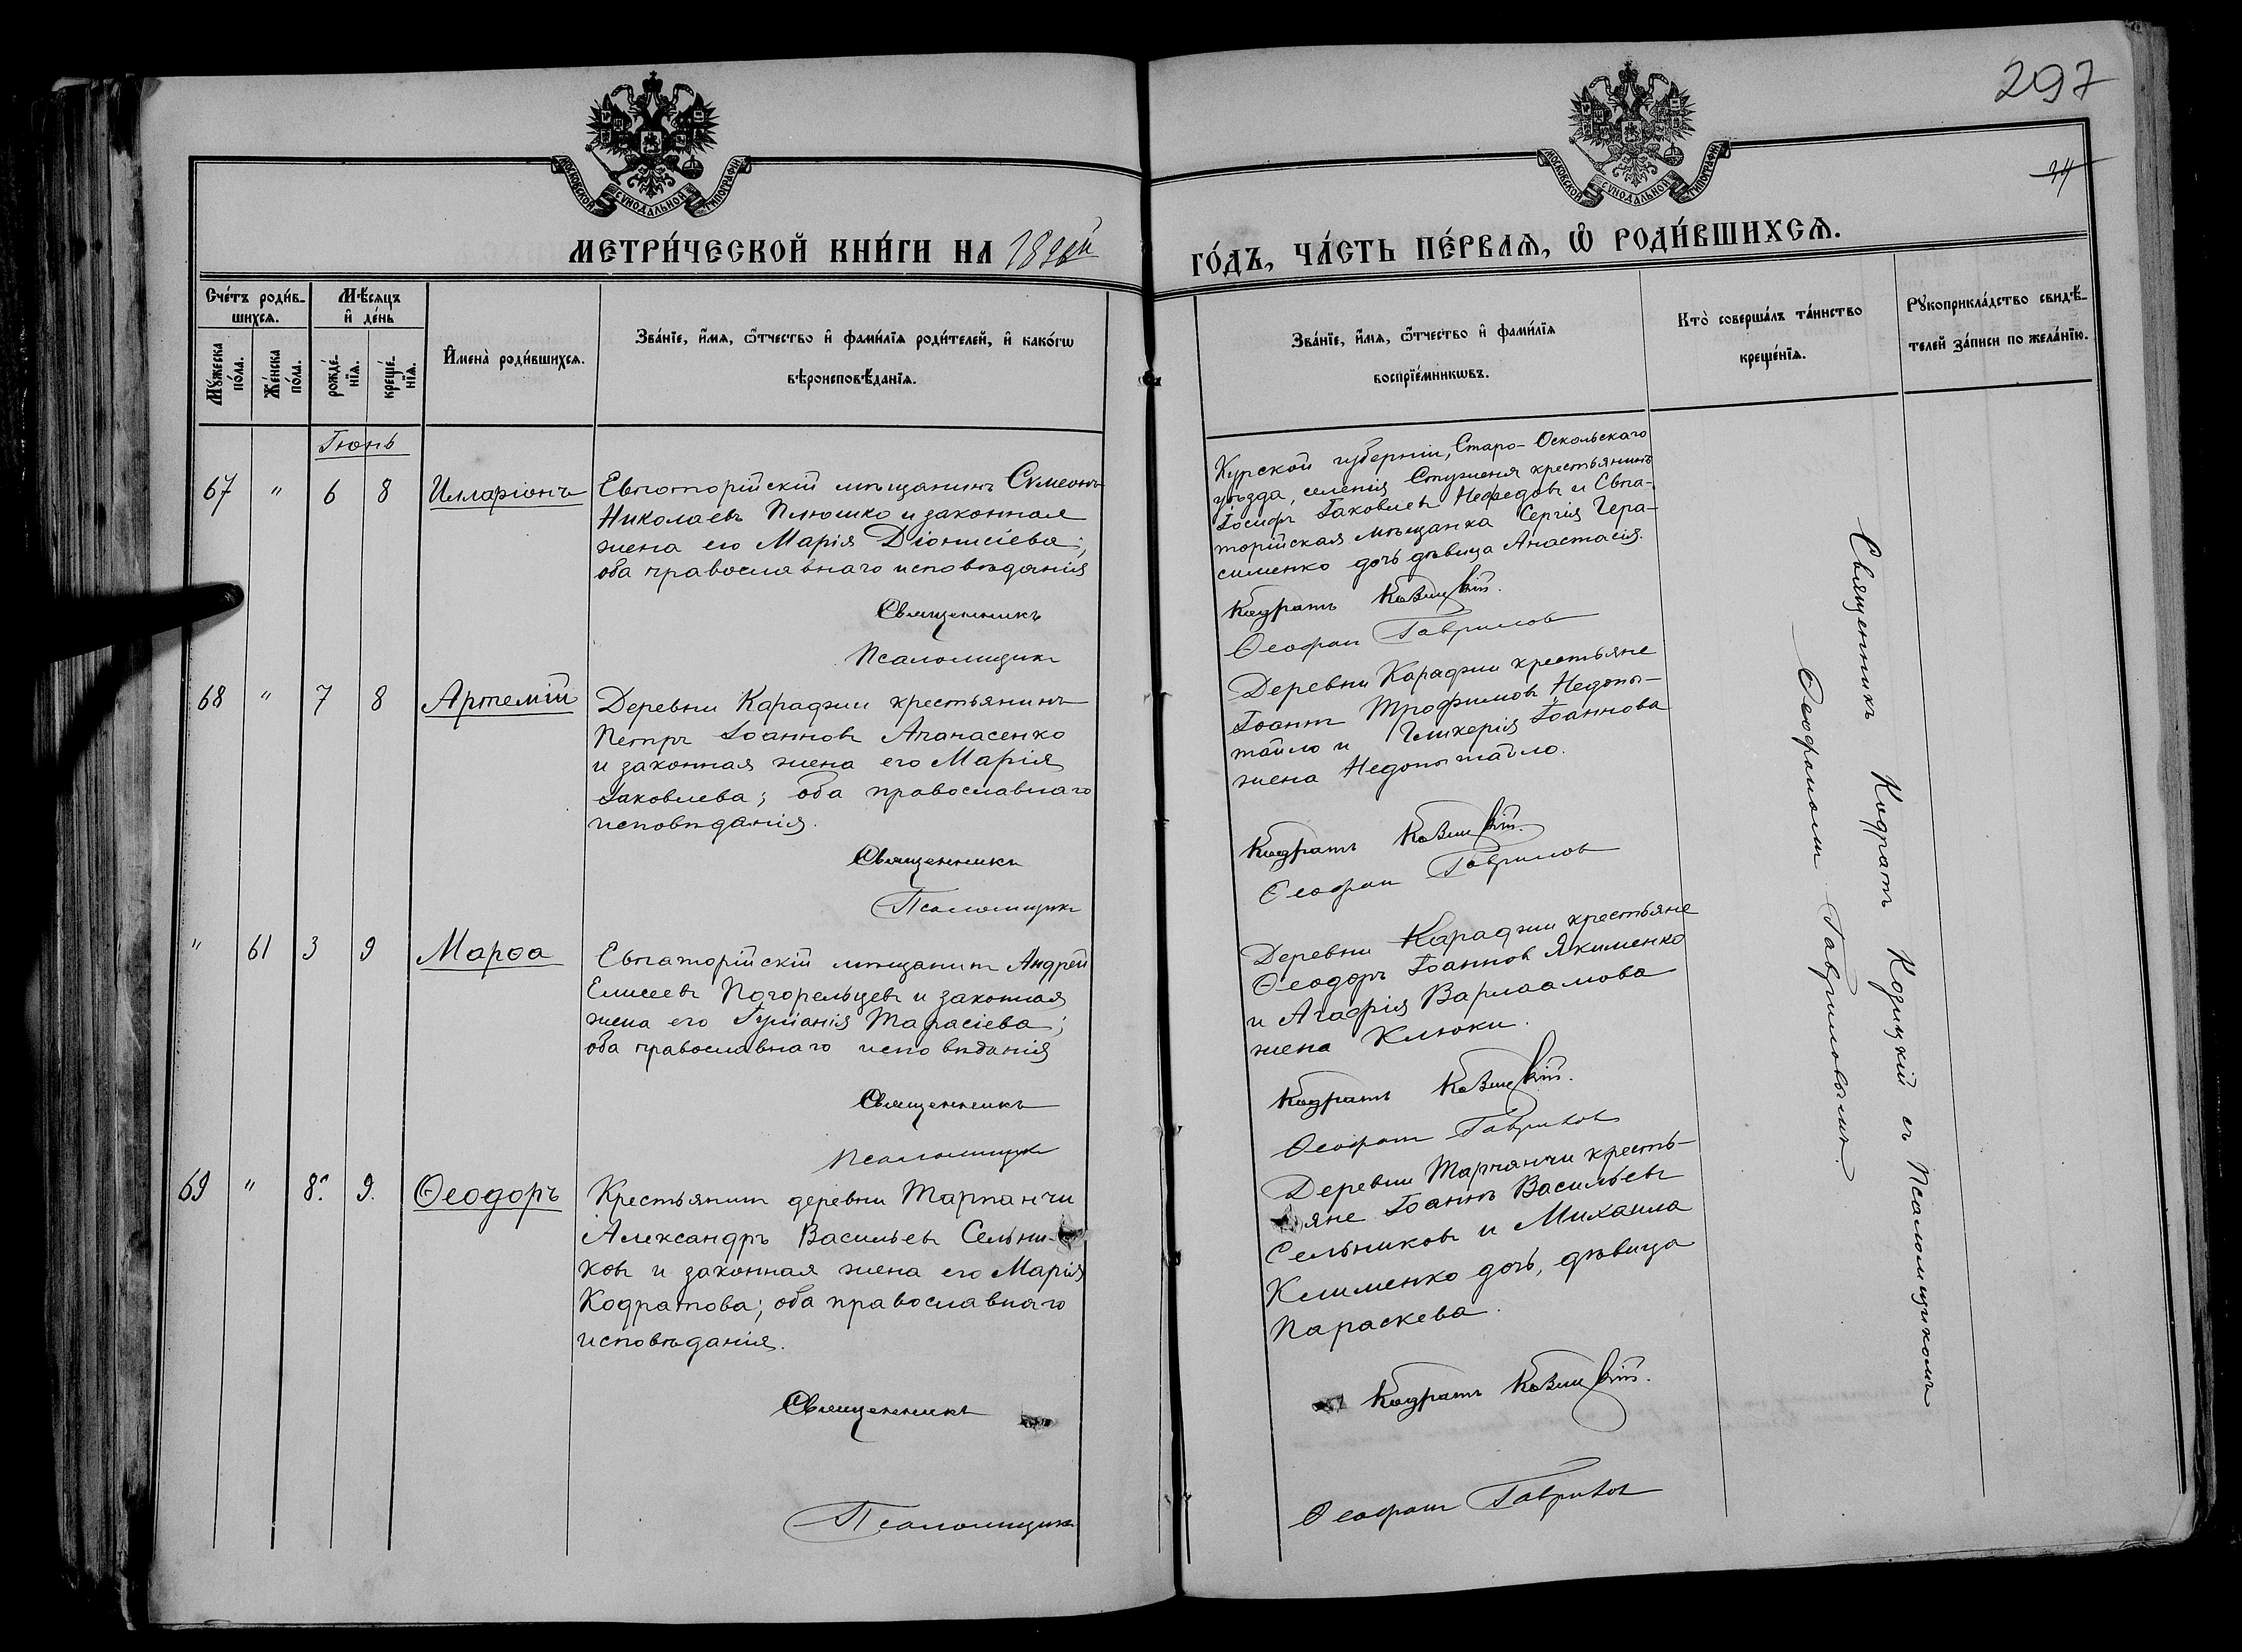 297
44
МОСКОВСКОЙ СѴНОДАЛЬНОЙ ТИПОГРАФІИ
МОСКОВСКОЙ СѴНОДАЛЬНОЙ ТИПОГРАФІИ
МЕТРИ́ЧЕСКОЙ КНИ́ГИ НА
ГО́ДЪ, ЧА́СТЬ ПЕ́РВАЯ, Ѡ РОДИ́ВШИХСЯ.
Сче́тъ роди́в-
шихся.
Мꙋ́жеска по́ла.
Же́нска по́ла.
Мѣ́сяцъ и҆ де́нь
рожде́-нїя.
креще́-нїя.
И҆мена̀ роди́вшихся.
Зва́нїе, и҆́мя, ѻ҆́тчество и҆ фами́лїя роди́телей, и҆ како́гѡ
вѣроисповѣ́данїя.
Зва́нїе, и҆́мя, ѻ҆́тчество и҆ фами́лїя
воспрїе́мникѡвъ.
Кто̀ соверша́лъ та́инство
креще́нїя.
Рꙋкоприкла́дство свидѣ́-
телей за́писи по жела́нїю.
Іюнь
67 " 6 8 Илларіонъ
Евпаторійскій мѣщанинъ Сѵмеонъ
Николаевъ Плюшко и законная
жена его Марія Діонисіева;
оба православнаго исповѣданія
Священникъ
Псаломщикъ
Курской губерніи, Старо-Оскольскаго
уѣзда, селенія крестьянинъ
Іосифъ Іаковлевъ Нефедовъ и Евпа-
торійская мѣщанка Сергія Гера-
сименко дочь дѣвица Анастасія.
Кодратъ Козицкій.
Ѳеофан Гаврилов
68 " 7 8 Артемій
Деревни Караджи крестьянинъ
Петръ Іоанновъ Апанасенко
и законная жена его Марія
Іаковлева; оба православнаго
исповѣданія.
Священникъ
Псаломщикъ
Деревни Караджи крестьяне
Іоаннъ Трофимовъ Недопы-
тайло и Гликерія Іоаннова
жена Недопытайло.
Кодратъ Козицкій.
Ѳеофан Гаврилов
" 61 3 9 Марѳа
Евпаторійскій мѣщанинъ Андрей
Елисеевъ Погорельцевъ и законная
жена его Іуліанія Тарасіева;
оба православнаго исповѣданія
Священникъ
Псаломщикъ
Деревни Караджи крестьяне
Ѳеодоръ Іоанновъ Якименко
и Агафія Варлаамова
жена Клюки.
Кодратъ Козицкій.
Ѳеофан Гаврилов
69 " 8. 9. Ѳеодоръ
Крестьянинъ деревни Тарпанчи
Александръ Васильевъ Сельни-
ковъ и законная жена его Марія
Кодратова; оба православнаго
исповѣданія.
Священникъ
Псаломщикъ
Деревни Тарпанчи кресть-
яне Іоаннъ Васильевъ
Сельниковъ и Михаила
Клименко дочь, дѣвица
Параскева.
Кодратъ Козицкій.
Ѳеофан Гаврилов
Священникъ Кодратъ Козицкій съ Псаломщикомъ
Ѳеофаномъ Гавриловымъ.